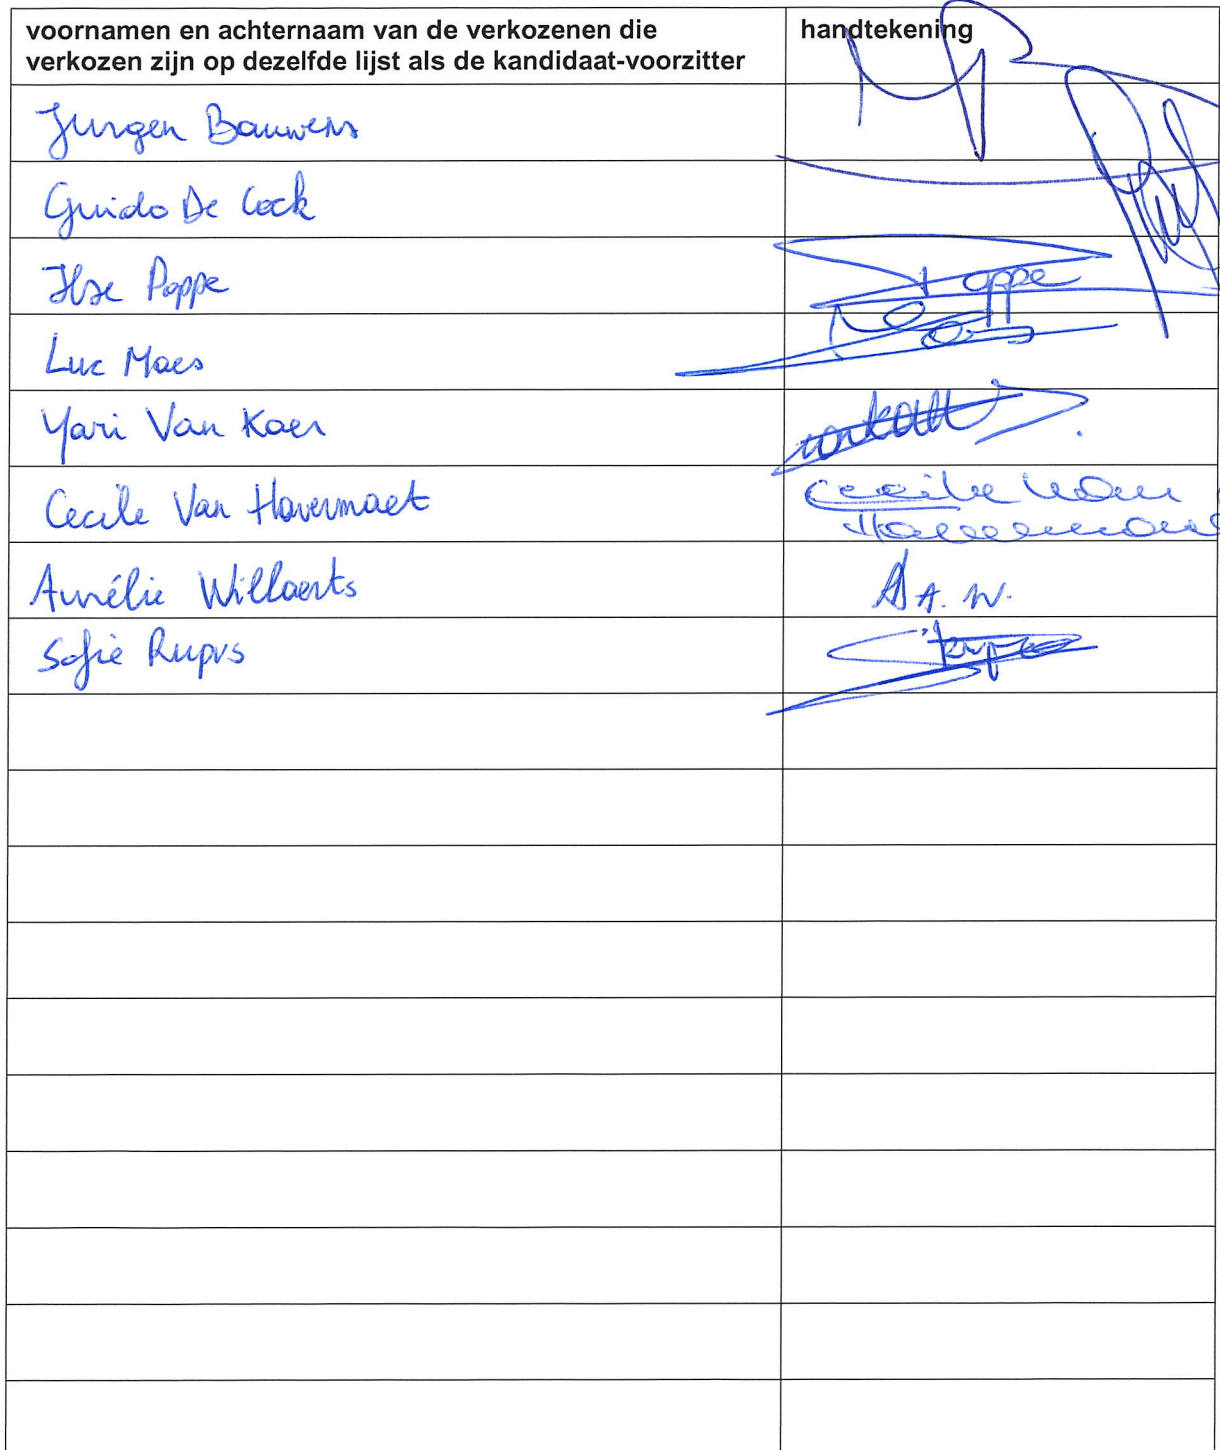 voornamen en achternaam van de verkozenen die
verkozen zijn op dezelfde lijst als de kandidaat-voorzitter
handtekening
Jurgen Bauwens
Guido De Cock
Ilse Poppe
Poppe
Luc Maes
Maes
Yari Van Kaer
Cecile Van Havermaet
Cecile Van
Aurélie Willaerts
A. W.
Sofie Rupus